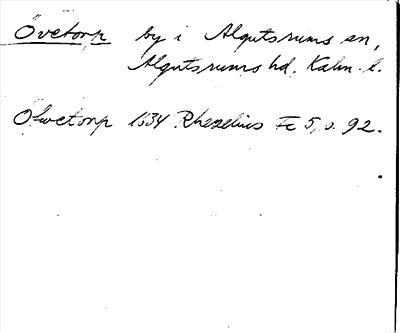 Övetorp by i Algutsrums sn,
Algutsrums hd. Kalm. l.
Ofwetorp 1634 Rhezelius Fc 5, s. 92.